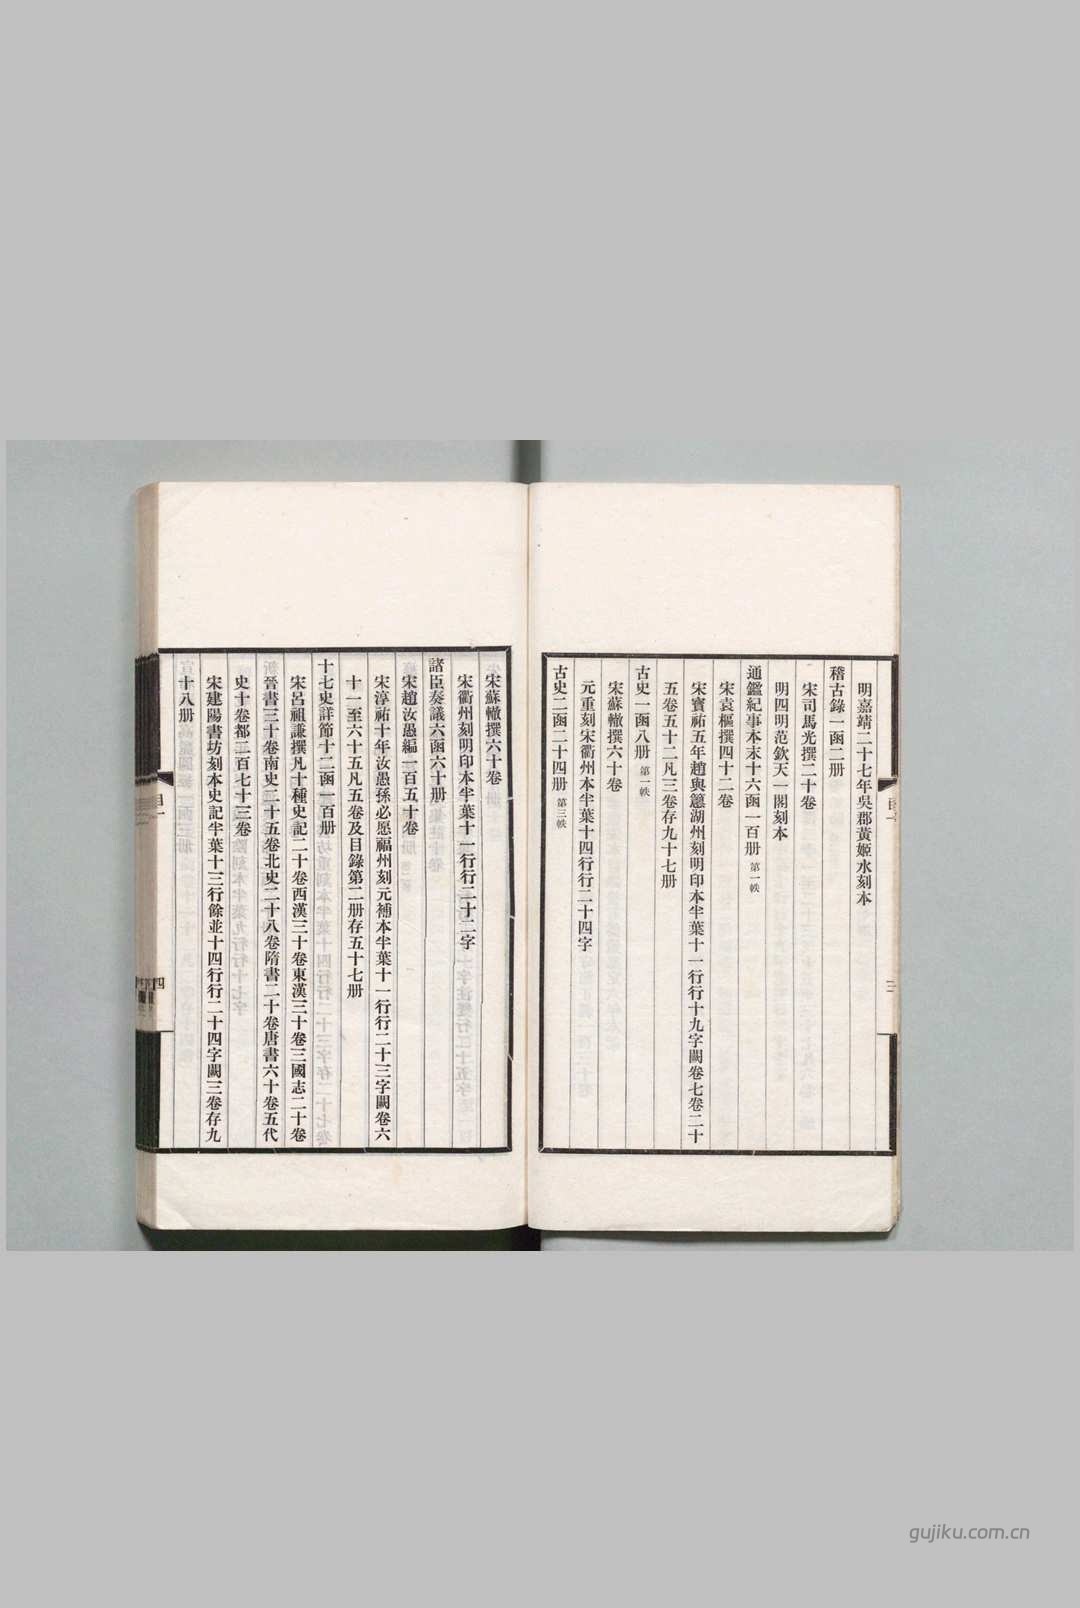 明嘉靖二十七年吳郡黃姬水刻本
稽古錄一函二册
宋司馬光撰二十卷
明四明范欽天一閣刻本
通鑑紀事本末十六函一百册 第一帙
宋袁樞撰四十二卷
宋寶祐五年趙與𥲅湖州刻明印本半葉十一行行十九字闕卷七卷二十
五卷五十二凡三卷存九十七册
古史一函八册 第一帙
宋蘇轍撰六十卷
元重刻宋衢州本半葉十四行行二十四字
古史二函二十四册 第三帙
宋蘇轍撰六十卷
宋衢州刻明印本半葉十一行行二十二字
諸臣奏議六函六十册
宋趙汝愚編一百五十卷
宋淳祐十年汝愚孫必愿福州刻元補本半葉十一行行二十三字闕卷六
十一至六十五凡五卷及目錄第二册存五十七册
十七史詳節十二函一百册
宋呂祖謙撰凡十種史記二十卷西漢三十卷東漢三十卷三國志二十卷
晉書三十卷南史二十五卷北史二十八卷隋書二十卷唐書六十卷五代
史十卷都二百七十三卷
宋建陽書坊刻本史記半葉十三行餘並十四行行二十四字闕三卷存九
十八册
目一
四
gujiku.com.cn